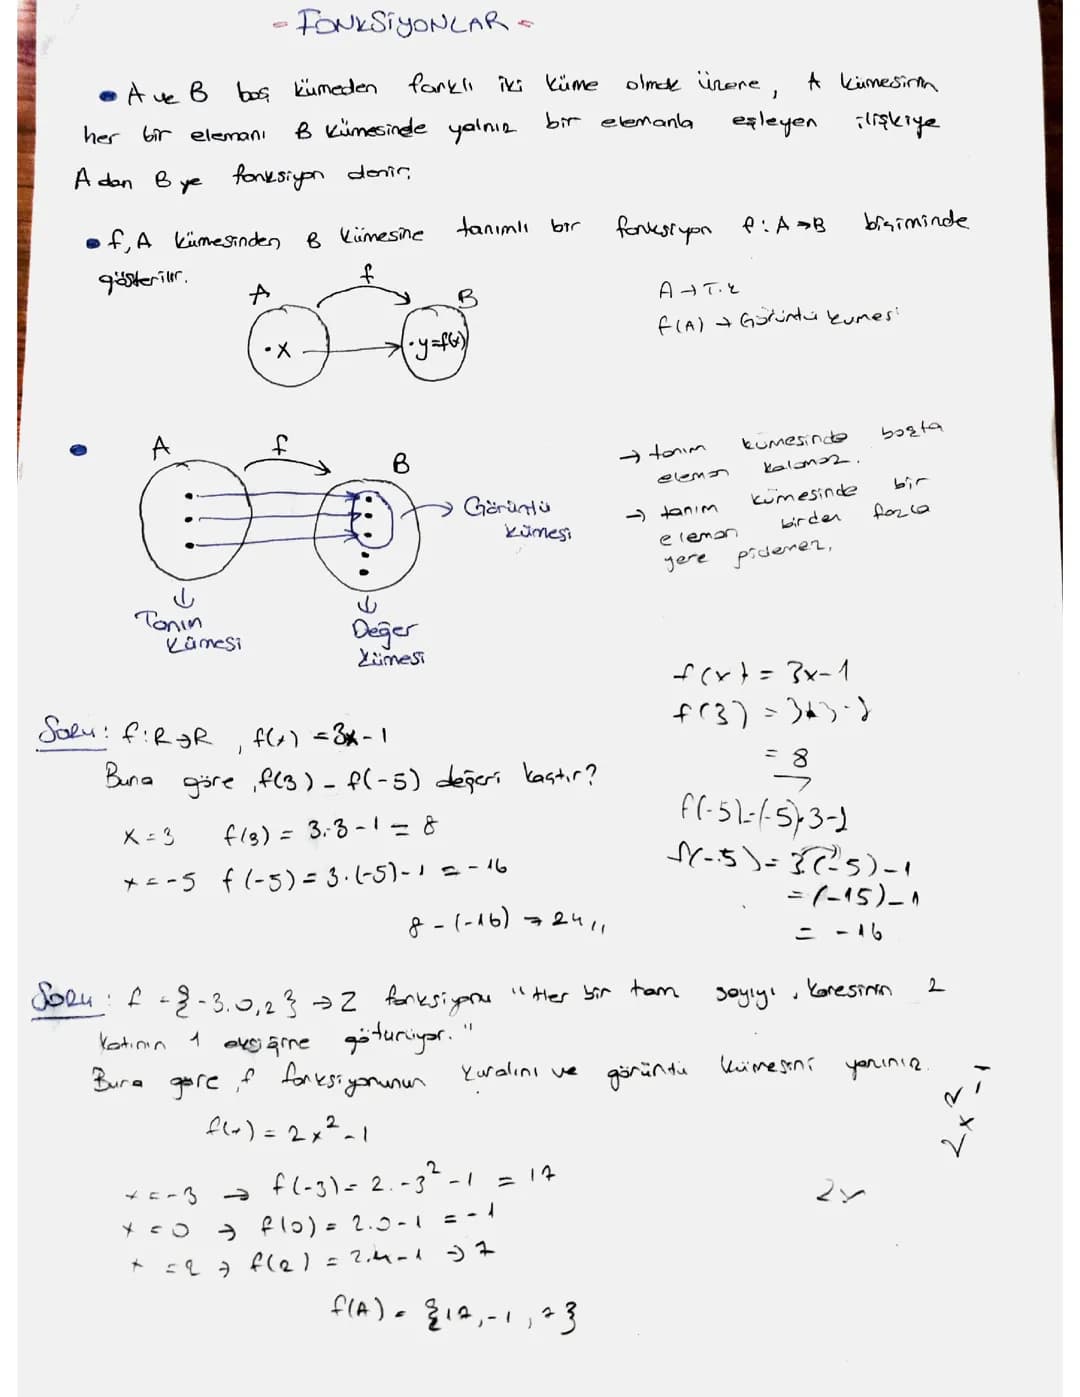 - FONKSİYONLAR -
• A ve B boş kümeden farklı iki küme olmak üzere, A kümesinin
her bir elemanı B kümesinde yalnız bir elemanla eşleyen ilişkiye
A dan B ye fonksiyon denir.
• f, A kümesinden B kümesine tanımlı bir fonksiyon f: A→B biçiminde
gösterilir.
A f B
•x •y=f(x)
A → T.K
f(A) → Görüntü kümesi
A f B
→ Görüntü
kümesi
Tanım
kümesi
Değer
kümesi
→ tanım kümesinde boşta
eleman kalamaz.
→ tanım kümesinde bir
eleman birden fazla
yere gidemez.
Soru: f: R→R, f(x) = 3x-1
Buna göre, f(3) - f(-5) değeri kaçtır?
x = 3 f(3) = 3.3-1 = 8
x = -5 f(-5) = 3.(-5)-1 = -16
8 - (-16) → 24,,
f(x) = 3x-1
f(3) = 3.3-1
= 8
f(-5)=(-5).3-1
f(-5) = 3.(-5)-1
= (-15)-1
= -16
Soru: f = {-3,0,2} → Z fonksiyonu "Her bir tam sayıyı, karesinin 2
katının 1 eksiğine götürüyor."
Buna göre, f fonksiyonunun kuralını ve görüntü kümesini yazınız.
f(x) = 2x²-1
x = -3 → f(-3) = 2.-3²-1 = 17
x = 0 → f(0) = 2.0-1 = -1
x = 2 → f(2) = 2.4-1 → 7
f(A) = {17,-1,7}
2x²-1
2x